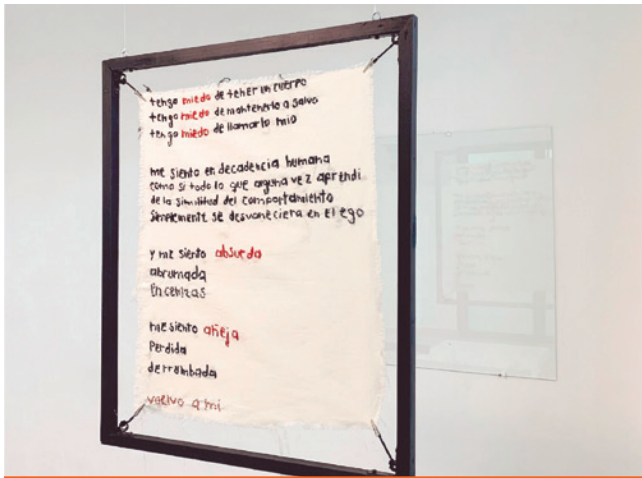 tengo miedo de tener un cuerpo
tengo miedo de mantenerlo a salvo
tengo miedo de llamarlo mio
me siento en decadencia humana
como si todo lo que alguna vez aprendi
de la similitud del comportamiento
simplemente se desvaneciera en el ego
y me siento absurda
abrumada
En cenizas
me siento añeja
Perdida
derrumbada
vuelvo a mi